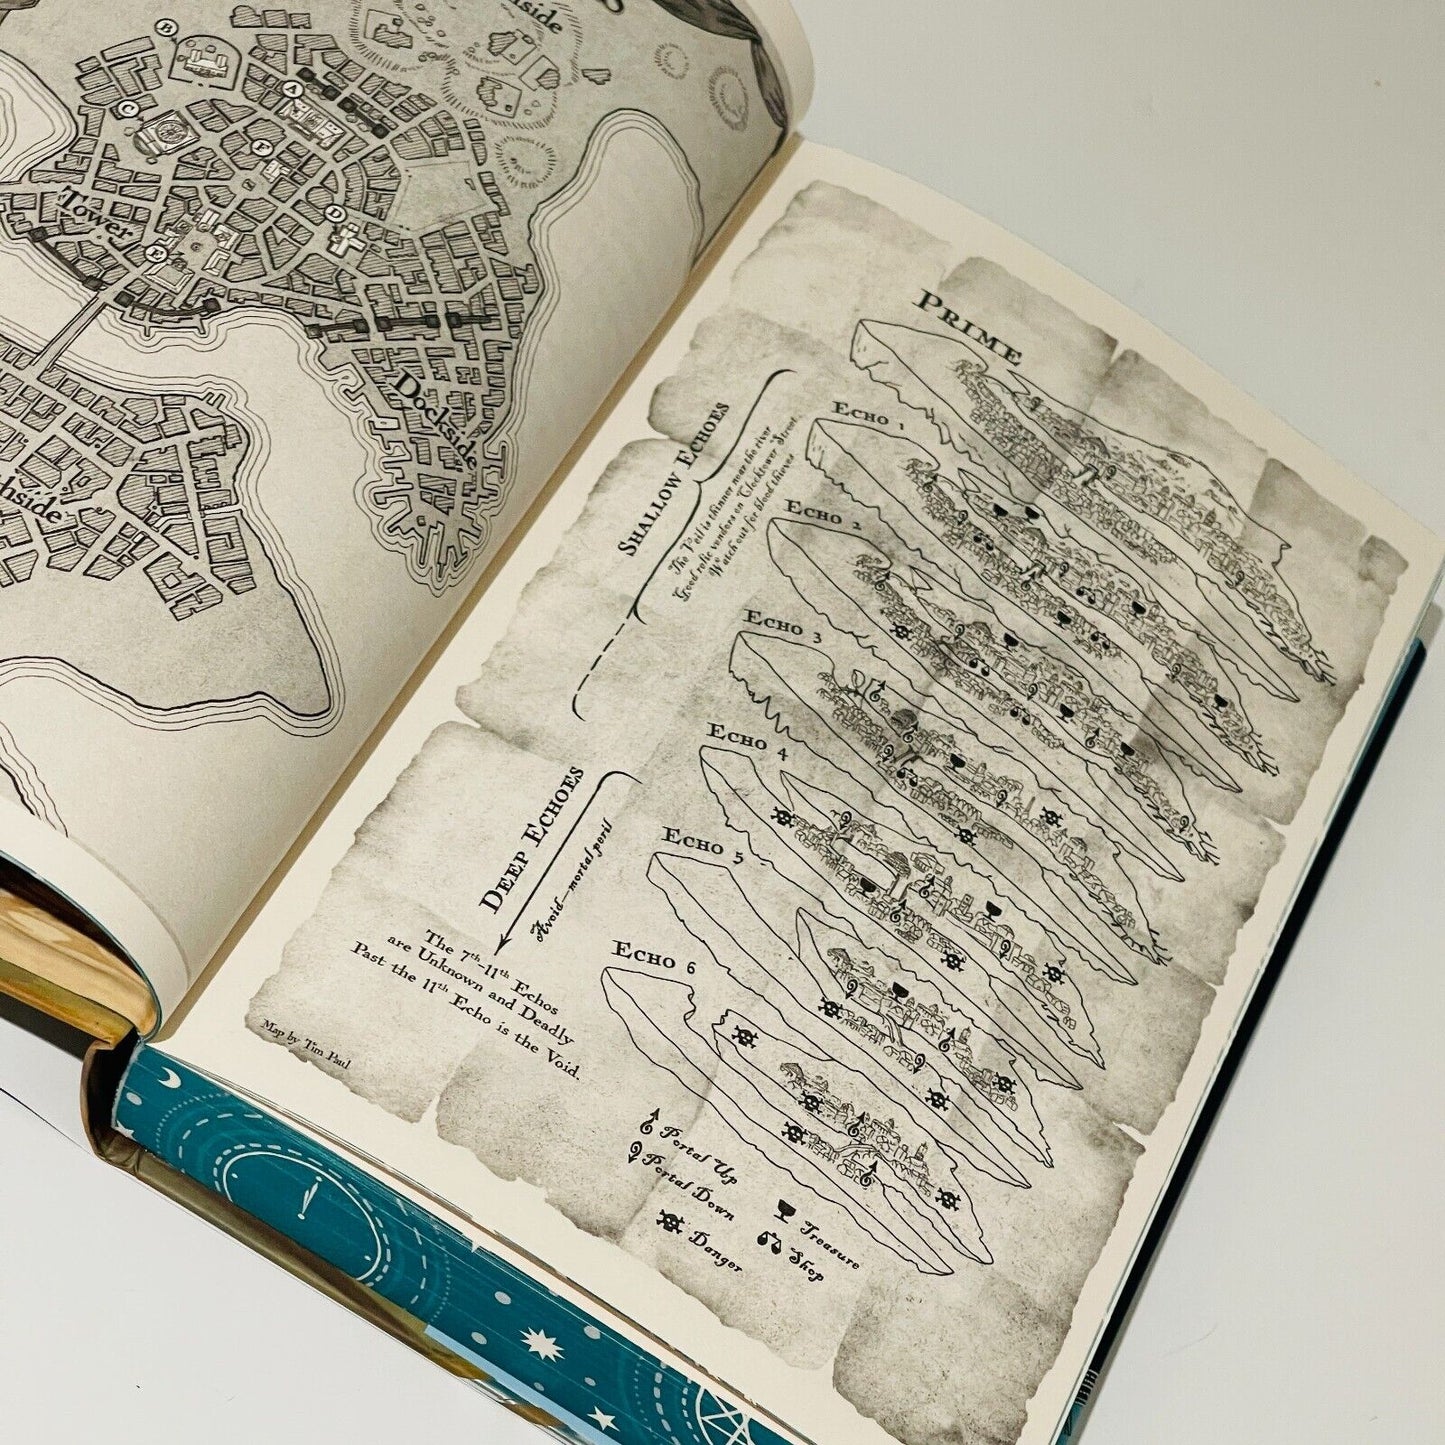 B
A
C
F
D
E
Tower
Dockside
PRIME
ECHO 1
ECHO 2
ECHO 3
ECHO 4
ECHO 5
ECHO 6
SHALLOW ECHOES
The Veil is thinner near the river
Good relic vendors on Clocktower Street.
Watch out for blood thieves
DEEP ECHOES
Avoid—mortal peril
The 7th-11th Echos
are Unknown and Deadly
Past the 11th Echo is the Void.
Map by Tim Paul
Portal Up
Portal Down
Danger
Treasure
Shop